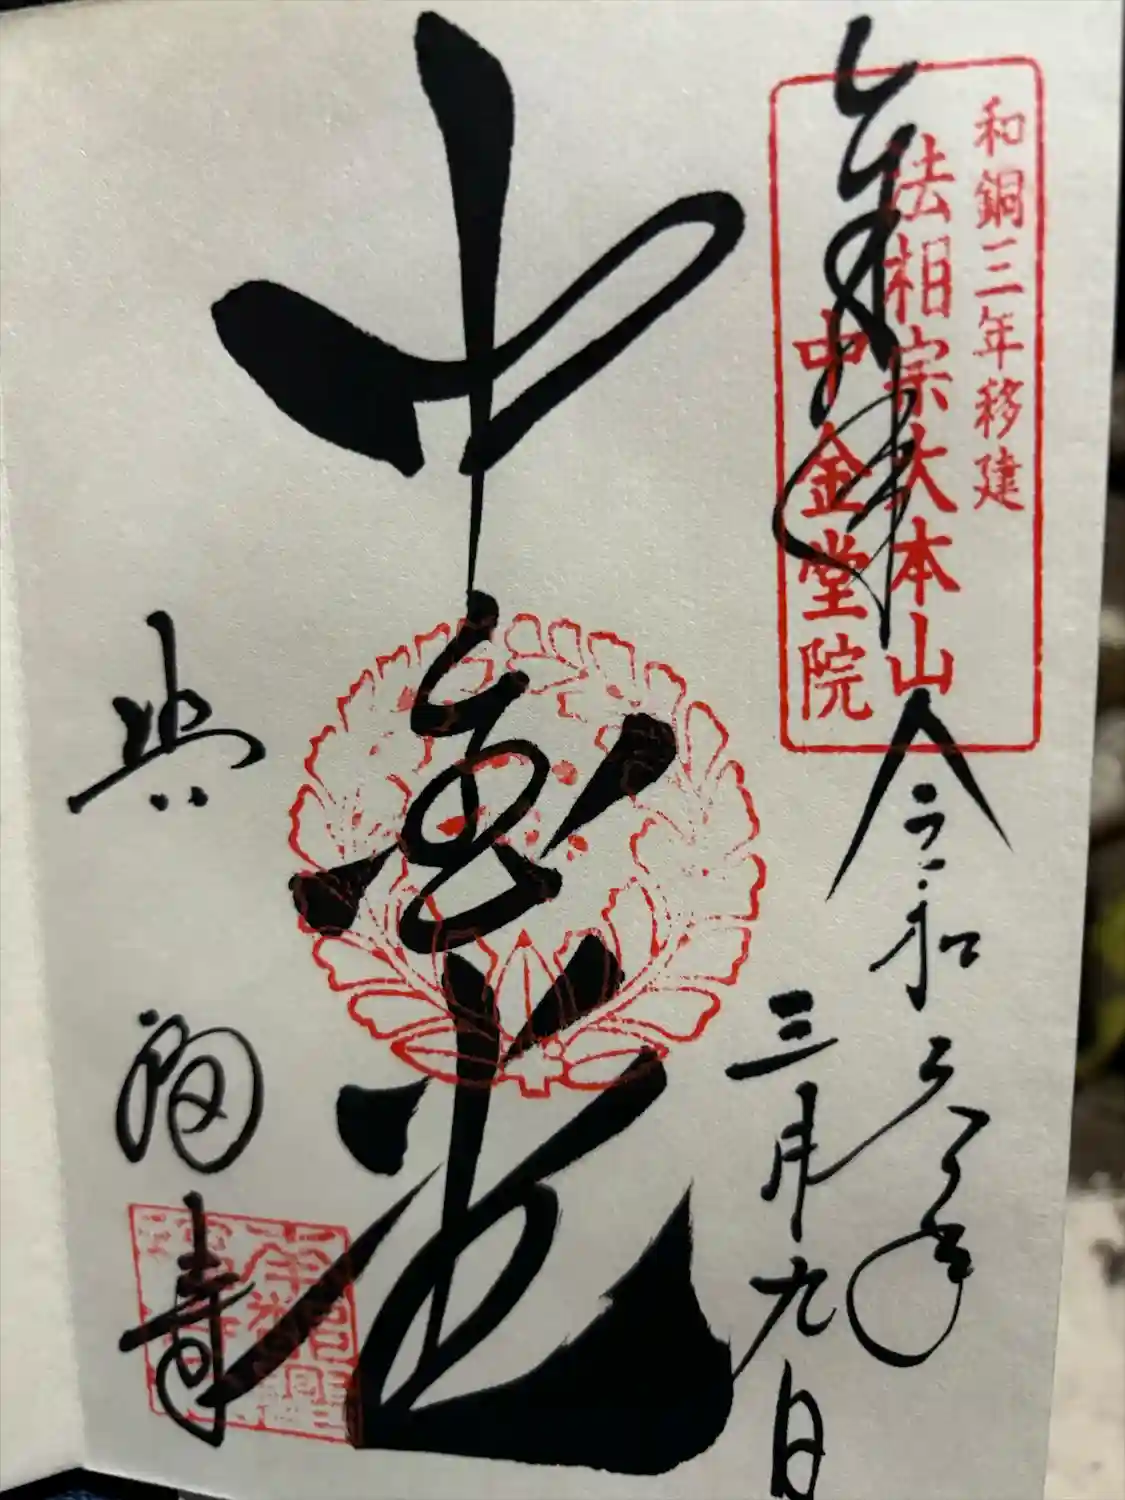 和銅三年移建
法相宗大本山
中金堂院
奉拝
令和六年
三月九日
中金堂
興福寺